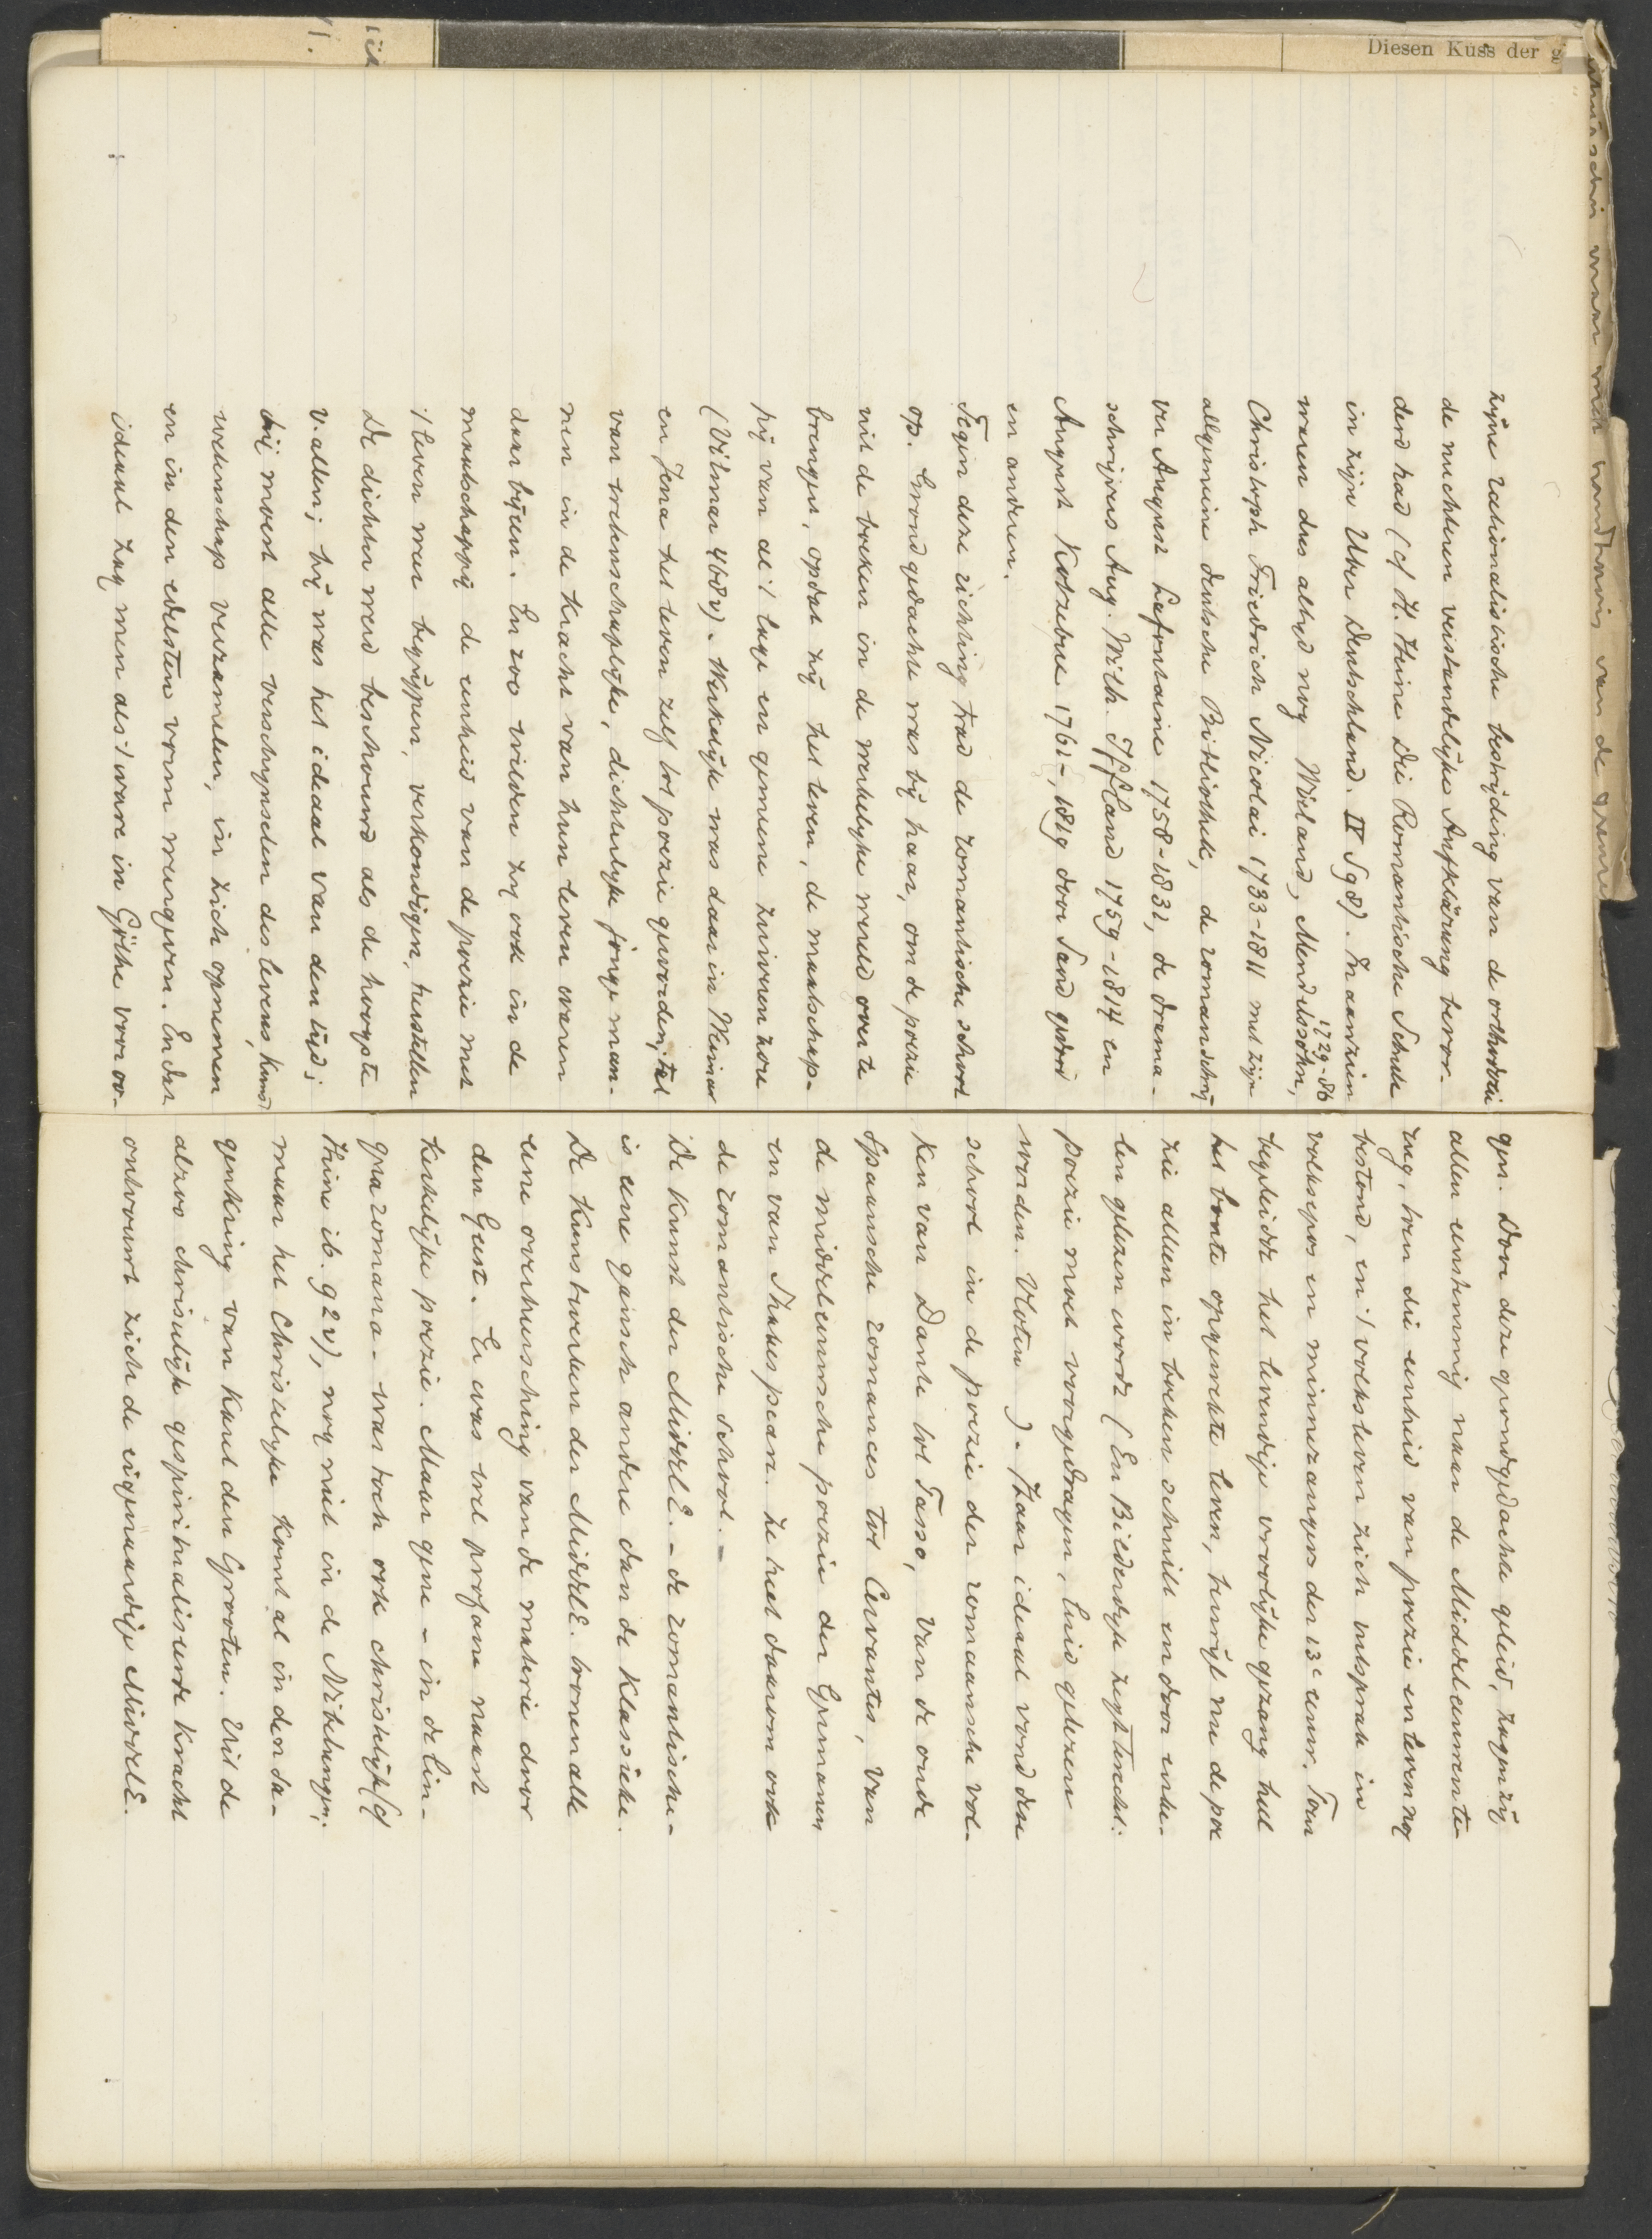 Diesen Kuss der g
zijne rationalistische bestrijding van de orthodoxie
de nuchteren verstandelijke Aufklärung bevor-
derd had (cf H. Heine Die Romantische Schule
in zijn Ueber Deutschland. II S 98). In aanzien
waren dus altyd nog Wieland, Mendelssohn, 1729-86
Christoph Friedrich Nicolai 1733-1811 met zijn
allgemeine deutsche Bibliothek, de romanschrij
ver August Lafontaine 1758-1831, de drama-
schrijvers Aug. Wilh. Iffland 1759-1814 en
August Kotzebue 1761-1819 door Sand gedood
en anderen.
Tegen deze richting trad de romantische school
op. Grondgedachte was bij haar, om de poezie
uit de boeken in de werkelyke wereld over te
brengen, opdat zij het leven, de maatschap-
pij van al 't lage en gemeene zuiveren zou
(Vilmar 468v). Werkelijk was daar in Weimar
en Jena het leven zelf tot poezie geworden; tal
van wetenschaplijke, dichterlyke jonge man-
nen in de kracht van hun leven waren
daar bijeen. En zoo wilden zy ook in de
maatschappij de eenheid van de poezie met
't leven weer begrijpen, verkondigen, herstellen
De dichter werd beschouwd als de hoogste
v. allen; hij was het ideaal van den tijd;
hij moest alle verschynselen des levens, kunst
wetenschap verzamelen, in zich opnemen
en in den edelsten vorm weergeven. En dat
ideaal zag men als 't ware in Göthe voor oo-
gen. Door deze grondgedachte geleid, zagen zij
allen eenstemmig naar de Middeleeuwen te-
rug, toen die eenheid van poezie en leven nog
bestond, en 't volksleven zich uitsprak in
volksepos en minnezangers der 13e eeuw. Toen
begeleidde het levendige vroolijke gezang heel
het bonte opgewekte leven, terwijl nu de poe
zie alleen in boeken schuilt en door enke-
len gelezen wordt (En Bilderdyk zegt terecht:
poezie moet voorgedragen, luid gelezen
worden. Vloten ). Haar ideaal vond deze
school in de poezie der romaansche vol-
ken van Dante tot Tasso, van de oude
Spaansche romances tot Cervantes, van
de middeleeuwsche poezie der Germanen
en van Shakespeare. Ze heet daarom ook
de romantische school. -
De kunst der MiddelE. - de romantische -
is eene gansch andere dan de klassieke.
De kunstwerken der MiddelE. toonen alle
eene overheersching van de materie door
den Geest. Er was wel profane naast
kerkelijke poezie. Maar gene - in de lin-
gua romana - was toch ook christelijk (cf
Heine ib. 92v), nog niet in de Nibelungen;
maar het Christelyke komt al in den sa-
genkring van Karel den Grooten. Uit de
alzoo christelijk gespiritualiseerde kracht
ontvouwt zich de eigenaardige MiddelE.